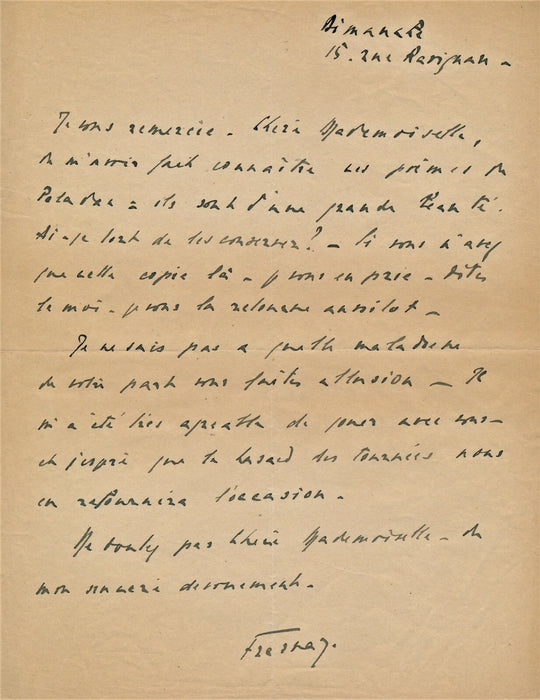 Dimanche
15. rue Ravignan -
Je vous remercie - Chère Mademoiselle,
de m'avoir fait connaître ces poèmes de
Peladan = ils sont d'une grande Beauté.
Ai-je tort de les conserver? - Si vous n'avez
que cette copie là - je vous en prie - dites
le moi - je vous la retourne aussitot -
Je ne sais pas a quelle maladresse
de votre part vous faites allusion - Il
m'a été très agreable de jouer avec vous -
et j'espère que le hasard des tournées nous
en refournira l'occasion.
Ne doutez pas Chère Mademoiselle - de
mon sincère devouement.
Fresnay.